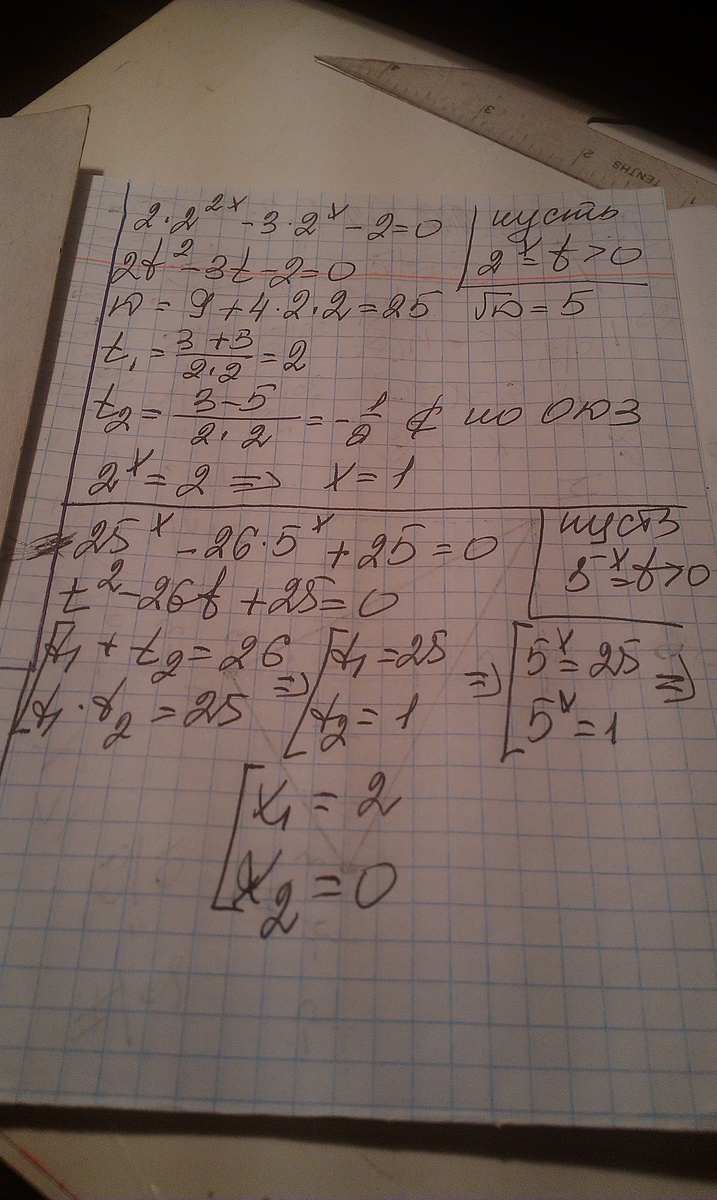 2·2^{2x} - 3·2^x - 2 = 0
пусть
2^x = t > 0
2t² - 3t - 2 = 0
D = 9 + 4·2·2 = 25 √D = 5
t₁ = \frac{3+5}{2·2} = 2
t₂ = \frac{3-5}{2·2} = -\frac{1}{2} ∉ по ОДЗ
2^x = 2 => x = 1
25^x - 26·5^x + 25 = 0
пусть
5^x = t > 0
t² - 26t + 25 = 0
[t₁ + t₂ = 26
t₁ · t₂ = 25
=> [t₁ = 25
t₂ = 1
=> [5^x = 25
5^x = 1
=>
[x₁ = 2
x₂ = 0
2
3
TENTHS